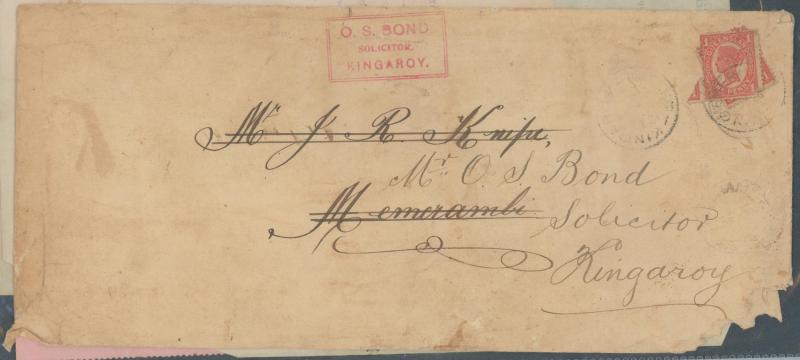 O. S. BOND
SOLICITOR.
KINGAROY.
Mr J R Knipe,
Mr O S Bond
Memerambi
Solicitor
Kingaroy